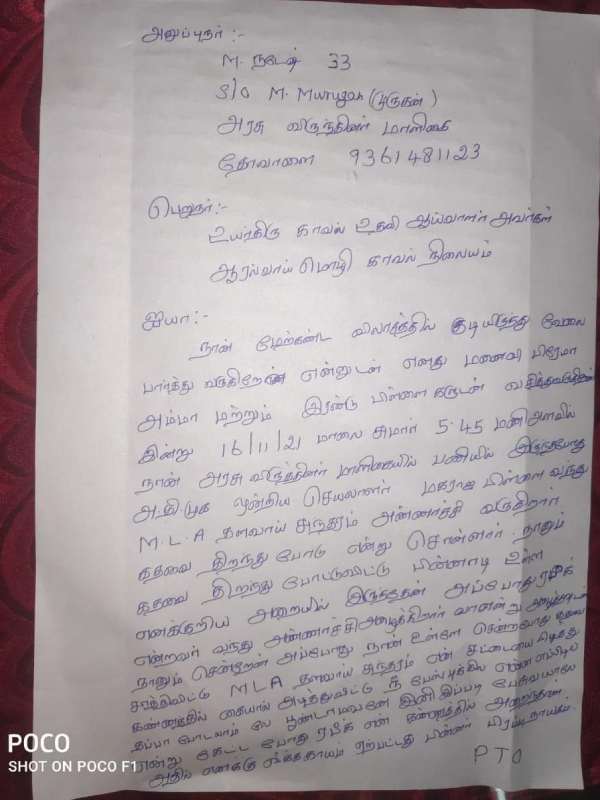 அனுப்புநர் :-
M. நடேஷ் 33
S/o M. (முருகன்)
அரசு விருந்தினர் மாளிகை
தோவாளை 9361481123
பெறுநர் :-
உயர்திரு காவல் உதவி ஆய்வாளர் அவர்கள்
ஆரல்வாய்மொழி காவல் நிலையம்
ஐயா :-
நான் மேற்கண்ட விலாசத்தில் குடியிருந்து வேலை
பார்த்து வருகிறேன் என்னுடன் எனது மனைவி பிரேமா
அம்மா மற்றும் இரண்டு பிள்ளைகளுடன்
இன்று 16/11/21 மாலை சுமார் 5.45 மணி அளவில்
நான் அரசு விருந்தினர் மாளிகையில் பணியில் இருந்தபோது
அ.தி.மு.க ஒன்றிய செயலாளர் மகராஜ பிள்ளை வந்து
M.L.A தளவாய் சுந்தரம் அண்ணாச்சி வருகிறார்
கதவை திறந்து போடு என்று சொன்னார். நானும்
கதவை திறந்து போட்டுவிட்டு பின்னாடி உள்ள
எனக்குறிய அறையில் இருந்தேன் அப்போது ரமேஷ்
என்றவர் வந்து அண்ணாச்சி அழைக்கிறார் வா என்று
நானும் சென்றேன் அப்போது நான் உள்ளே சென்றபோது கதவை
சாத்திவிட்டு MLA தளவாய் சுந்தரம் என் சட்டையை பிடித்து
கன்னத்தில் கையால் அடித்துவிட்டு நீ பேஸ்புக்கில் என்னை எப்படி
தப்பா போடலாம் லே இனி இப்படி பேசுவயாலே
என்று கேட்ட போது ரமேஷ் என் கன்னத்தில் அறைந்தான்
அதில் எனக்கு ஏற்பட்டது பின்னர்
PTO
POCO
SHOT ON POCO F1